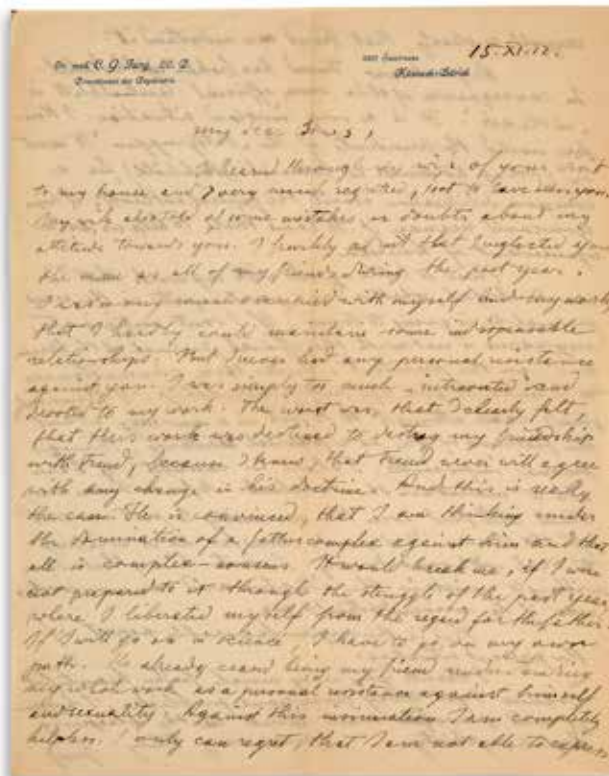 Dr. med. C. G. Jung, LL. D.
15. XI. 12.
Küsnach-Zürich
my dear Jones,
I heard through my wife of your visit
to my house and I very much regretted, not to have seen you.
My wife also told of some mistakes, or doubts about my
attitude towards you. I frankly admit that I neglected you
the same as all of my friends during the past year.
I was so very much occupied with myself and my work
that I hardly could maintain some indispensable
relationships. But I never had any personal resistance
against you. I was simply too much introverted and
devoted to my work. The worst was, that I clearly felt,
that this work was destined to destroy my friendship
with Freud, because I knew, that Freud never will agree
with any change in his doctrine. And this is really
the case. He is convinced, that I am thinking under
the domination of a father complex against him and that
all is complex-nonsense. It would break me, if I were
not prepared to it through the struggle of the past year
where I liberated myself from the regard for the father.
If I will go on in science I have to go on my own
path. already being my friend
my whole work as a personal resistance against himself
and sexuality. Against this insinuation I am completely
helpless. I only can regret, that I am not able to express